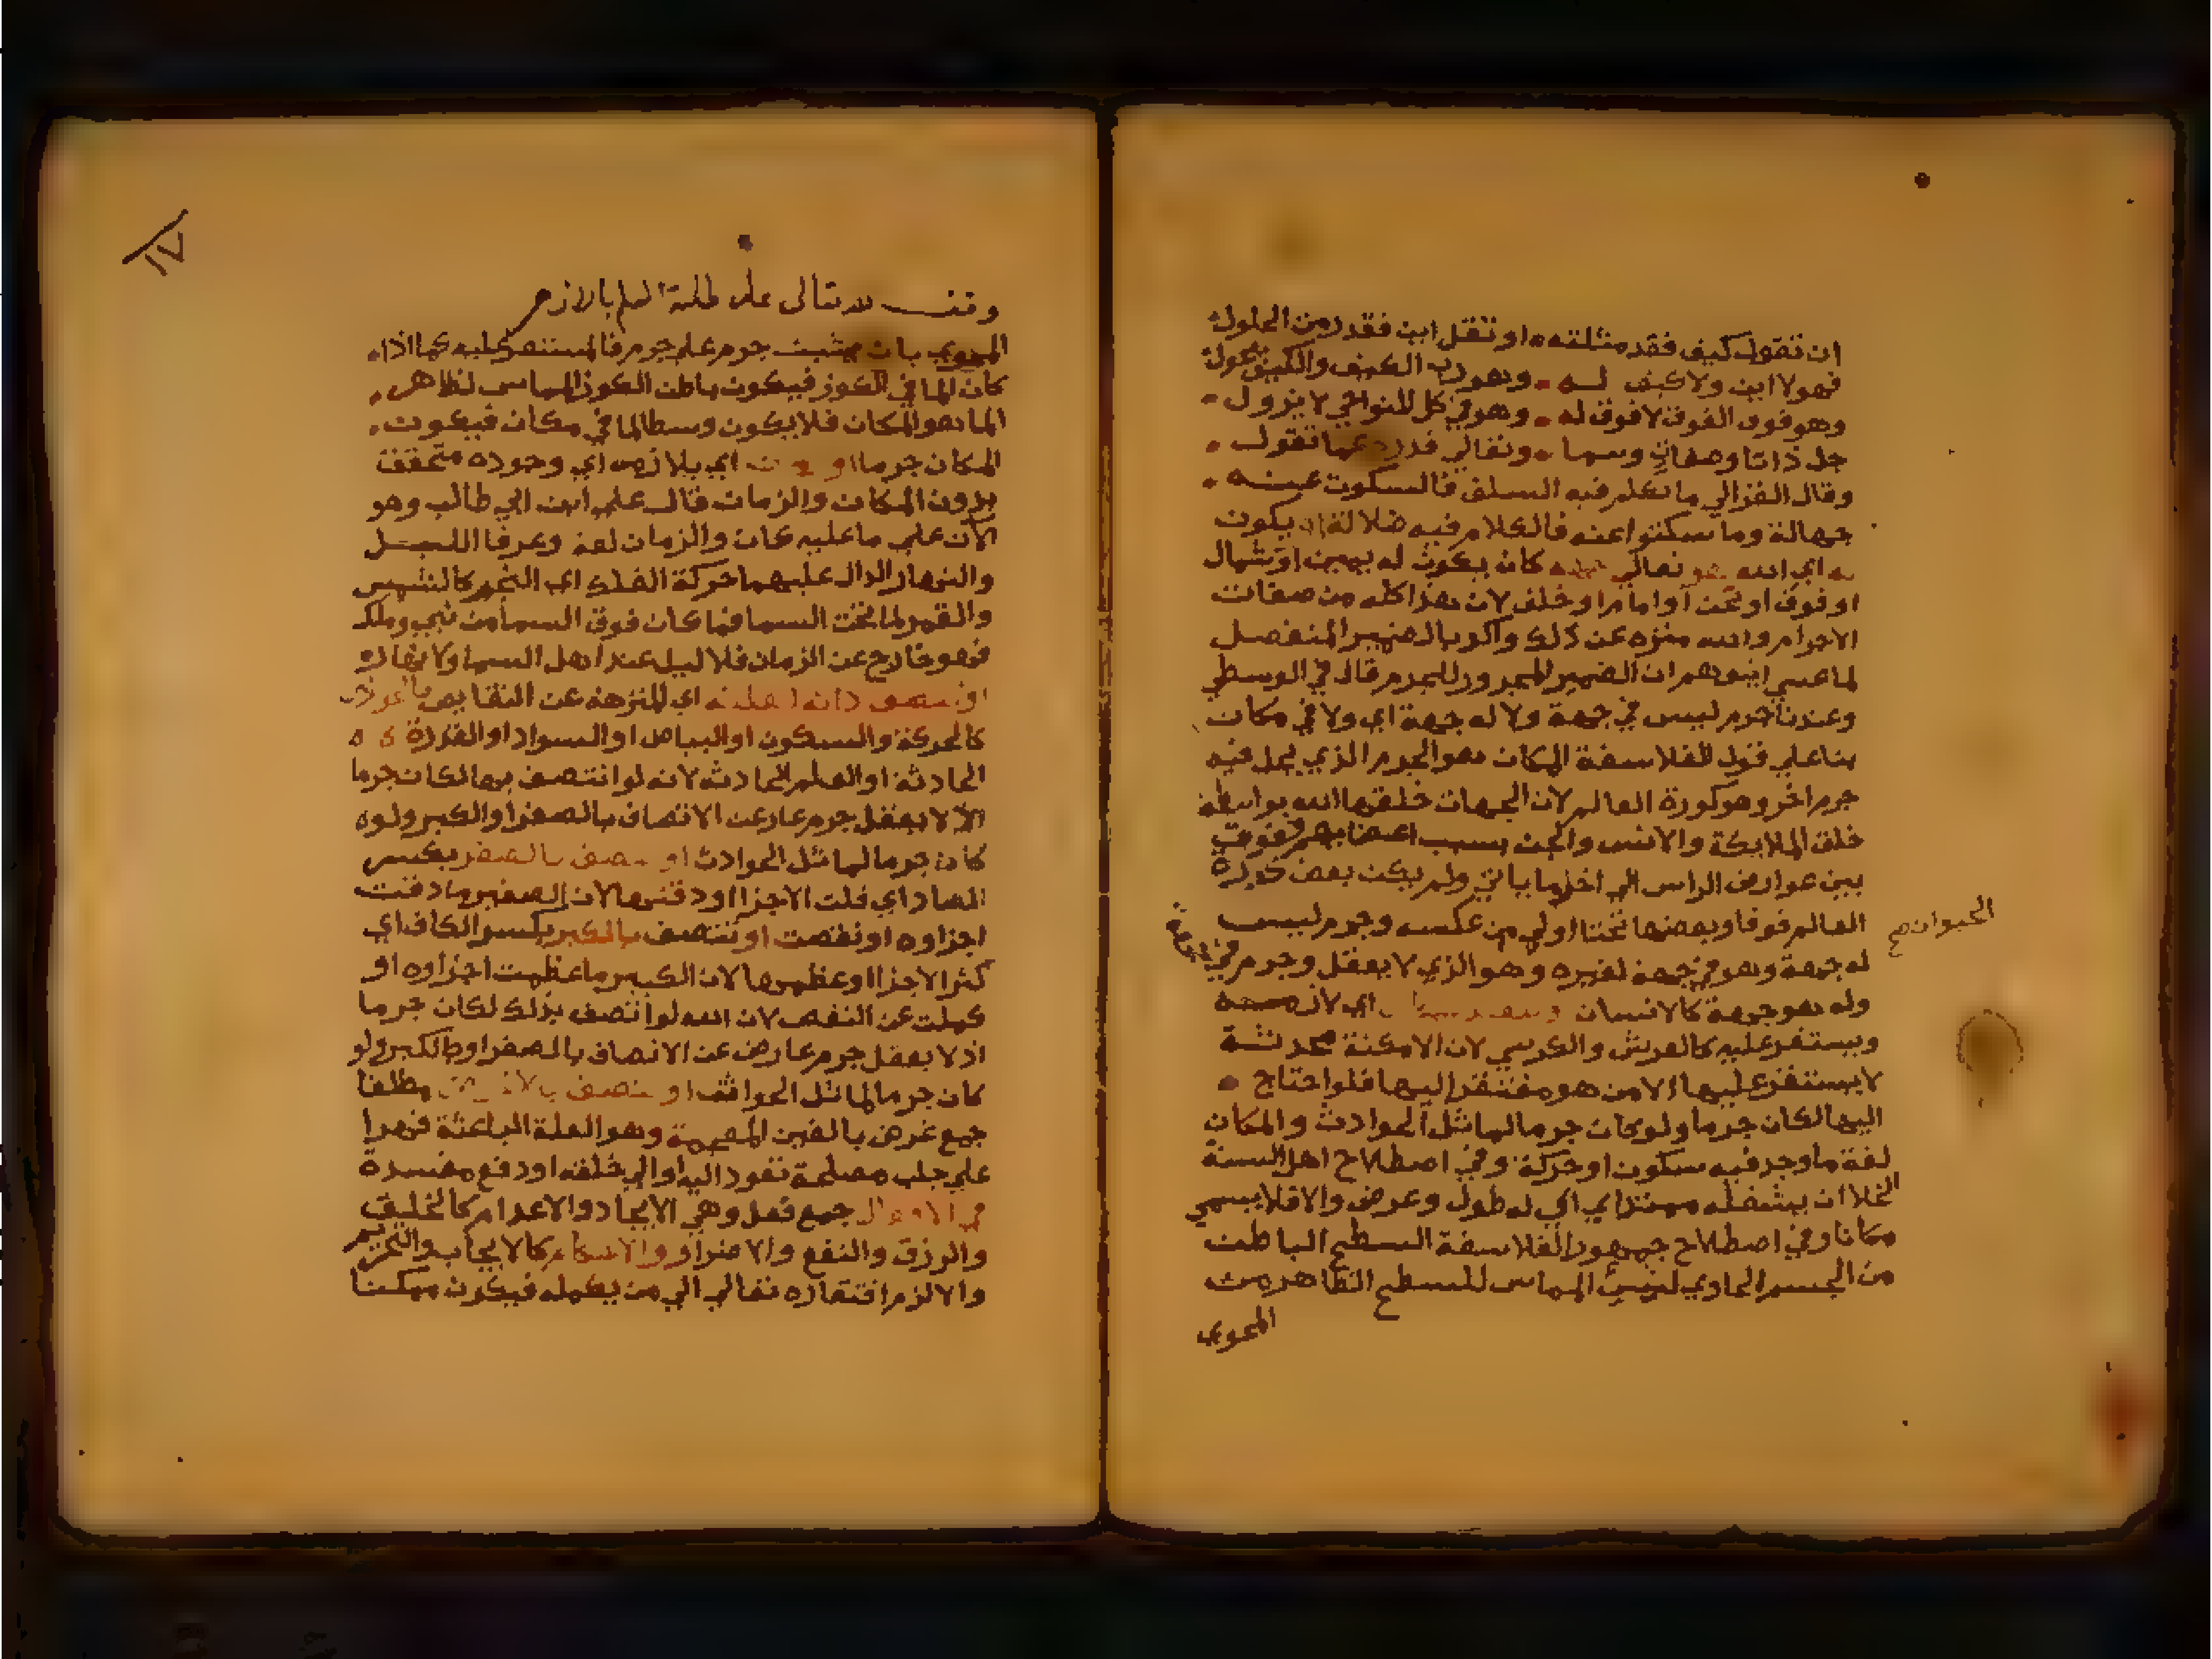 ان تقول كيف فقد مثلته او تقل اين فقد رمن الحلول
فهو لا اين ولا كيف له وهو رب الكيف والكيف يحول
وهو فوق الفوق لا فوق له وهو في كل النواحي لا يزول
جل ذاتا وصفات وسما وتعالي قدره عما تقول
وقال الغزالي ما تكلم فيه السلف فالسكوت عنه
جهالة وما سكتوا عنه فالكلام فيه ضلالة او يكون
اي الله هو تعالي جهة كان يكون له يمين او شمال
او فوق او تحت او امام او خلف لان هذا كله من صفات
الاجرام والله منزه عن ذلك واكد بالضمير المنفصل
لما عسي ان يتوهم ان الضمير المجرور للجرم قال في الوسطي
وعندنا جرم ليس في جهة ولا له جهة اي ولا في مكان
بنا علي قول الفلاسفة المكان هو الجرم الذي يحل فيه
جرم اخر وهو كورة العالم لان الجهات خلقها الله بواسطة
خلق الملايكة والانس والجن بسبب اعضايهم ففوق
بين عوارض الراس الي اخر ما ياتي ولم يكن بعض كورة
العالم فوقا وبعضها تحتا اولي من عكسه وجرم ليس
الحيوان صح
له جهة وهو في جهة لغيره وهو الذي لا يعقل وجرم في جهة
وله هو جهة كالانسان اي لانه
ويستقر عليه كالعرش والكرسي لان الامكنة محدثة
لا يستقر عليها الا من هو مفتقر اليها فلو احتاج
اليها لكان جرما ولو كان جرما لماثل الحوادث والمكان
لغة ما وجد فيه سكون او حركة وفي اصطلاح اهل السنة
الخلا ان يشغله ممتد اي له طول وعرض والا فلا يسمي
مكانا وفي اصطلاح جمهور الفلاسفة السطح الباطن
من الجسم الحاوي لشئ المماس للسطح الظاهر من
المحوي
١٧
وقف لله تعالى على طلبة العلم بالازهر
المحوي بان يثبت جرم علي جرم فالمستقر عليه كما اذا
كان الما في الكوز فيكون باطن الكوز المماس لظاهر
الما هو المكان فلا يكون وسط الما في مكان فيكون
المكان جرما او اي بلا زمن اي وجوده متحقق
بدون المكان والزمان قال علي ابن ابي طالب وهو
الآن علي ما عليه كان والزمان لغة وعرفا الليل
والنهار الدال عليهما حركة الفلك اي النجم كالشمس
والقمر لما تحت السما فما كان فوق السما من نبي وملك
فهو خارج عن الزمان فلا ليل عند اهل السما ولا نهار
او تتصف ذاته العلية اي المنزهة عن النقايص بالحوادث
كالحركة والسكون او البياض او السواد او القدرة
الحادثة او العلم الحادث لانه لو اتصف بها لكان جرما
اذ لا يعقل جرم عار عن الاتصاف بالصغر او الكبر ولو
كان جرما لماثل الحوادث او يتصف بالصغر بكسر
الصاد اي قلت الاجزا او دقتها لان الصغير ما دقت
اجزاوه او نقصت او تتصف بالكبر بكسر الكاف اي
كثر الاجزا او عظمها لان الكبير ما عظمت اجزاوه او
كملت عن النقص لان الله لو اتصف بذلك لكان جرما
اذ لا يعقل جرم عارض عن الاتصاف بالصغر او بالكبر ولو
كان جرما لماثل الحوادث او يتصف بالاغراض مطلقا
جمع غرض بالغين المعجمة وهو العلة الباعثة قهرا
علي جلب مصلحة تعود اليه او الي خلقه او دفع مفسدة
في الافعال جمع فعل وهي الايجاد والاعدام كالخلق
والرزق والنفع والاضرار والاحكام كالايجاب والتحريم
والا لزم افتقاره تعالي الي من يكمله فيكون ممكنا